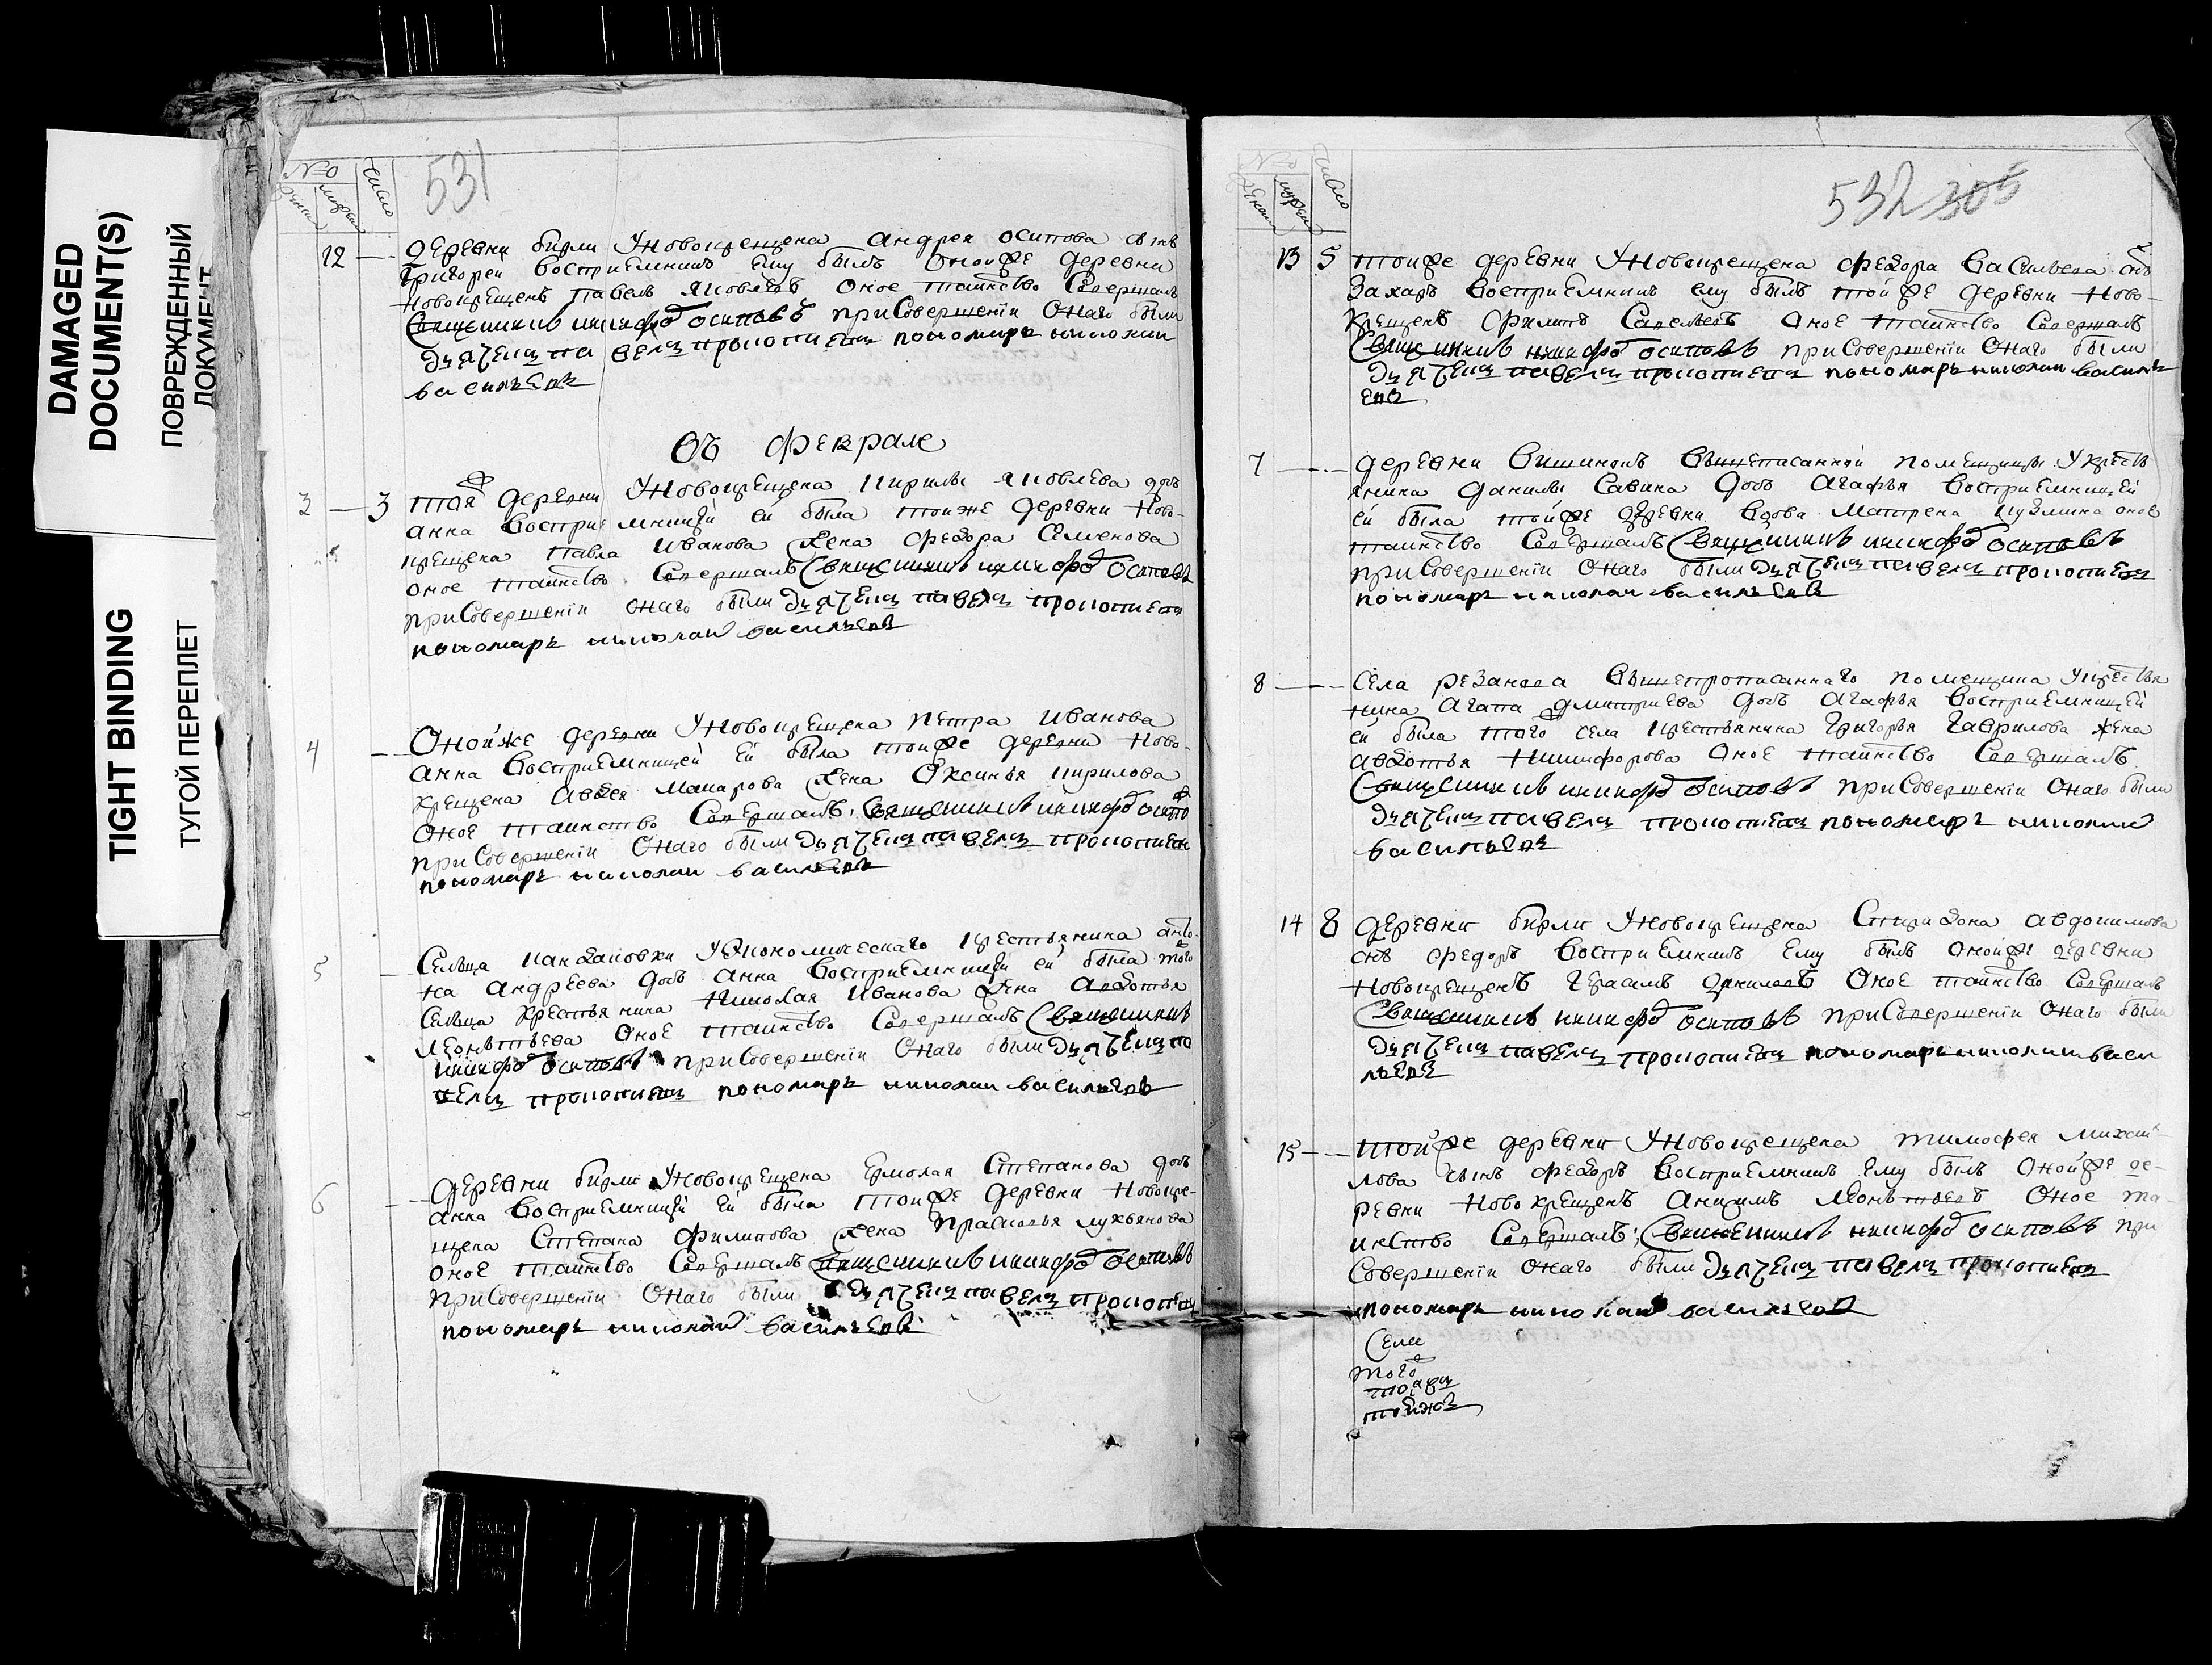 DAMAGED
DOCUMENT(S)
ПОВРЕЖДЕННЫЙ
ДОКУМЕНТ
TIGHT BINDING
ТУГОЙ ПЕРЕПЛЕТ
№
число
531
12 — деревни бирли Уновокрещена андрея осипова сынъ
григореи восприемникъ ему былъ онойже деревни
новокрещенъ павелъ яковлевъ оное таинство совершалъ
Священникъ никифоръ осиповъ присовершении онаго были
дьячекъ павелъ прокопиевъ пономарь николаи
васильевъ
въ феврале
3 — 3 тояже деревни Уновокрещена кирилы яковлева дочь
анна восприемницей ей была тойже деревни ново-
крещена павла иванова жена федора семенова
оное таинство совершалъ Священникъ никифоръ осиповъ
присовершении онаго были дьячекъ павелъ прокопиевъ
пономарь николаи васильевъ
4 — Онойже деревни Уновокрещена петра иванова
анна восприемницей ей была тойже деревни ново-
крещена авдея макарова жена оксинья кирилова
оное таинство совершалъ Священникъ никифоръ осипо
присовершении онаго были дьячекъ павелъ прокопиевъ
пономарь николаи васильевъ
5 — сельца Уекономическаго крестьянина анто-
на андреева дочь анна восприемницей ей была тогоже
сельца крестьянина николая иванова жена авдотья
леонтьева оное таинство совершалъ Священникъ
никифоръ осиповъ присовершении онаго были дьячекъ па
велъ прокопиевъ пономарь николаи васильевъ
6 — деревни бирли Уновокрещена ермолая степанова дочь
анна восприемницей ей была тойже деревни новокре-
щена степана филипова жена прасковья лукьянова
оное таинство совершалъ Священникъ никифоръ осиповъ
присовершении онаго были дьячекъ павелъ прокопиевъ
пономарь николаи васильевъ
№
число
532 305
13 5 тойже деревни Уновокрещена федора васильева снъ
захаръ восприемникъ ему былъ тойже деревни ново-
крещенъ филипъ савельевъ оное таинство совершалъ
Священникъ никифоръ осиповъ присовершении онаго были
дьячекъ павелъ прокопиевъ пономарь николаи василь
евъ
7 — деревни вышеписаннои помещицы Укресть
янина данилы савина дочь агафья восприемницей
ей была тойже деревни вдова матрена кузмина оное
таинство совершалъ Священникъ никифоръ осиповъ
присовершении онаго были дьячекъ павелъ прокопиевъ
пономарь николаи васильевъ
8 — села резанова вышепрописаннаго помещика Укрестья
нина агапа дмитриева дочь агафья восприемницей
ей была тогоже села крестьянина григорья гаврилова жена
авдотья никифорова оное таинство совершалъ
Священникъ никифоръ осиповъ присовершении онаго были
дьячекъ павелъ прокопиевъ пономарь николаи
васильевъ
14 8 деревни бирли Уновокрещена спиридона авдокимова
снъ федоръ восприемникъ ему былъ онойже деревни
новокрещенъ герасимъ даниловъ оное таинство совершалъ
Священникъ никифоръ осиповъ присовершении онаго были
дьячекъ павелъ прокопиевъ пономарь николаи васи
льевъ
15 — тойже деревни Уновокрещена тимофея михаи-
лова сынъ федоръ восприемникъ ему былъ онойже де-
ревни новокрещенъ анисимъ леонтьевъ оное та-
инство совершалъ Священникъ никифоръ осиповъ при
совершении онаго были дьячекъ павелъ прокопиевъ
пономарь николаи васильевъ
села
того